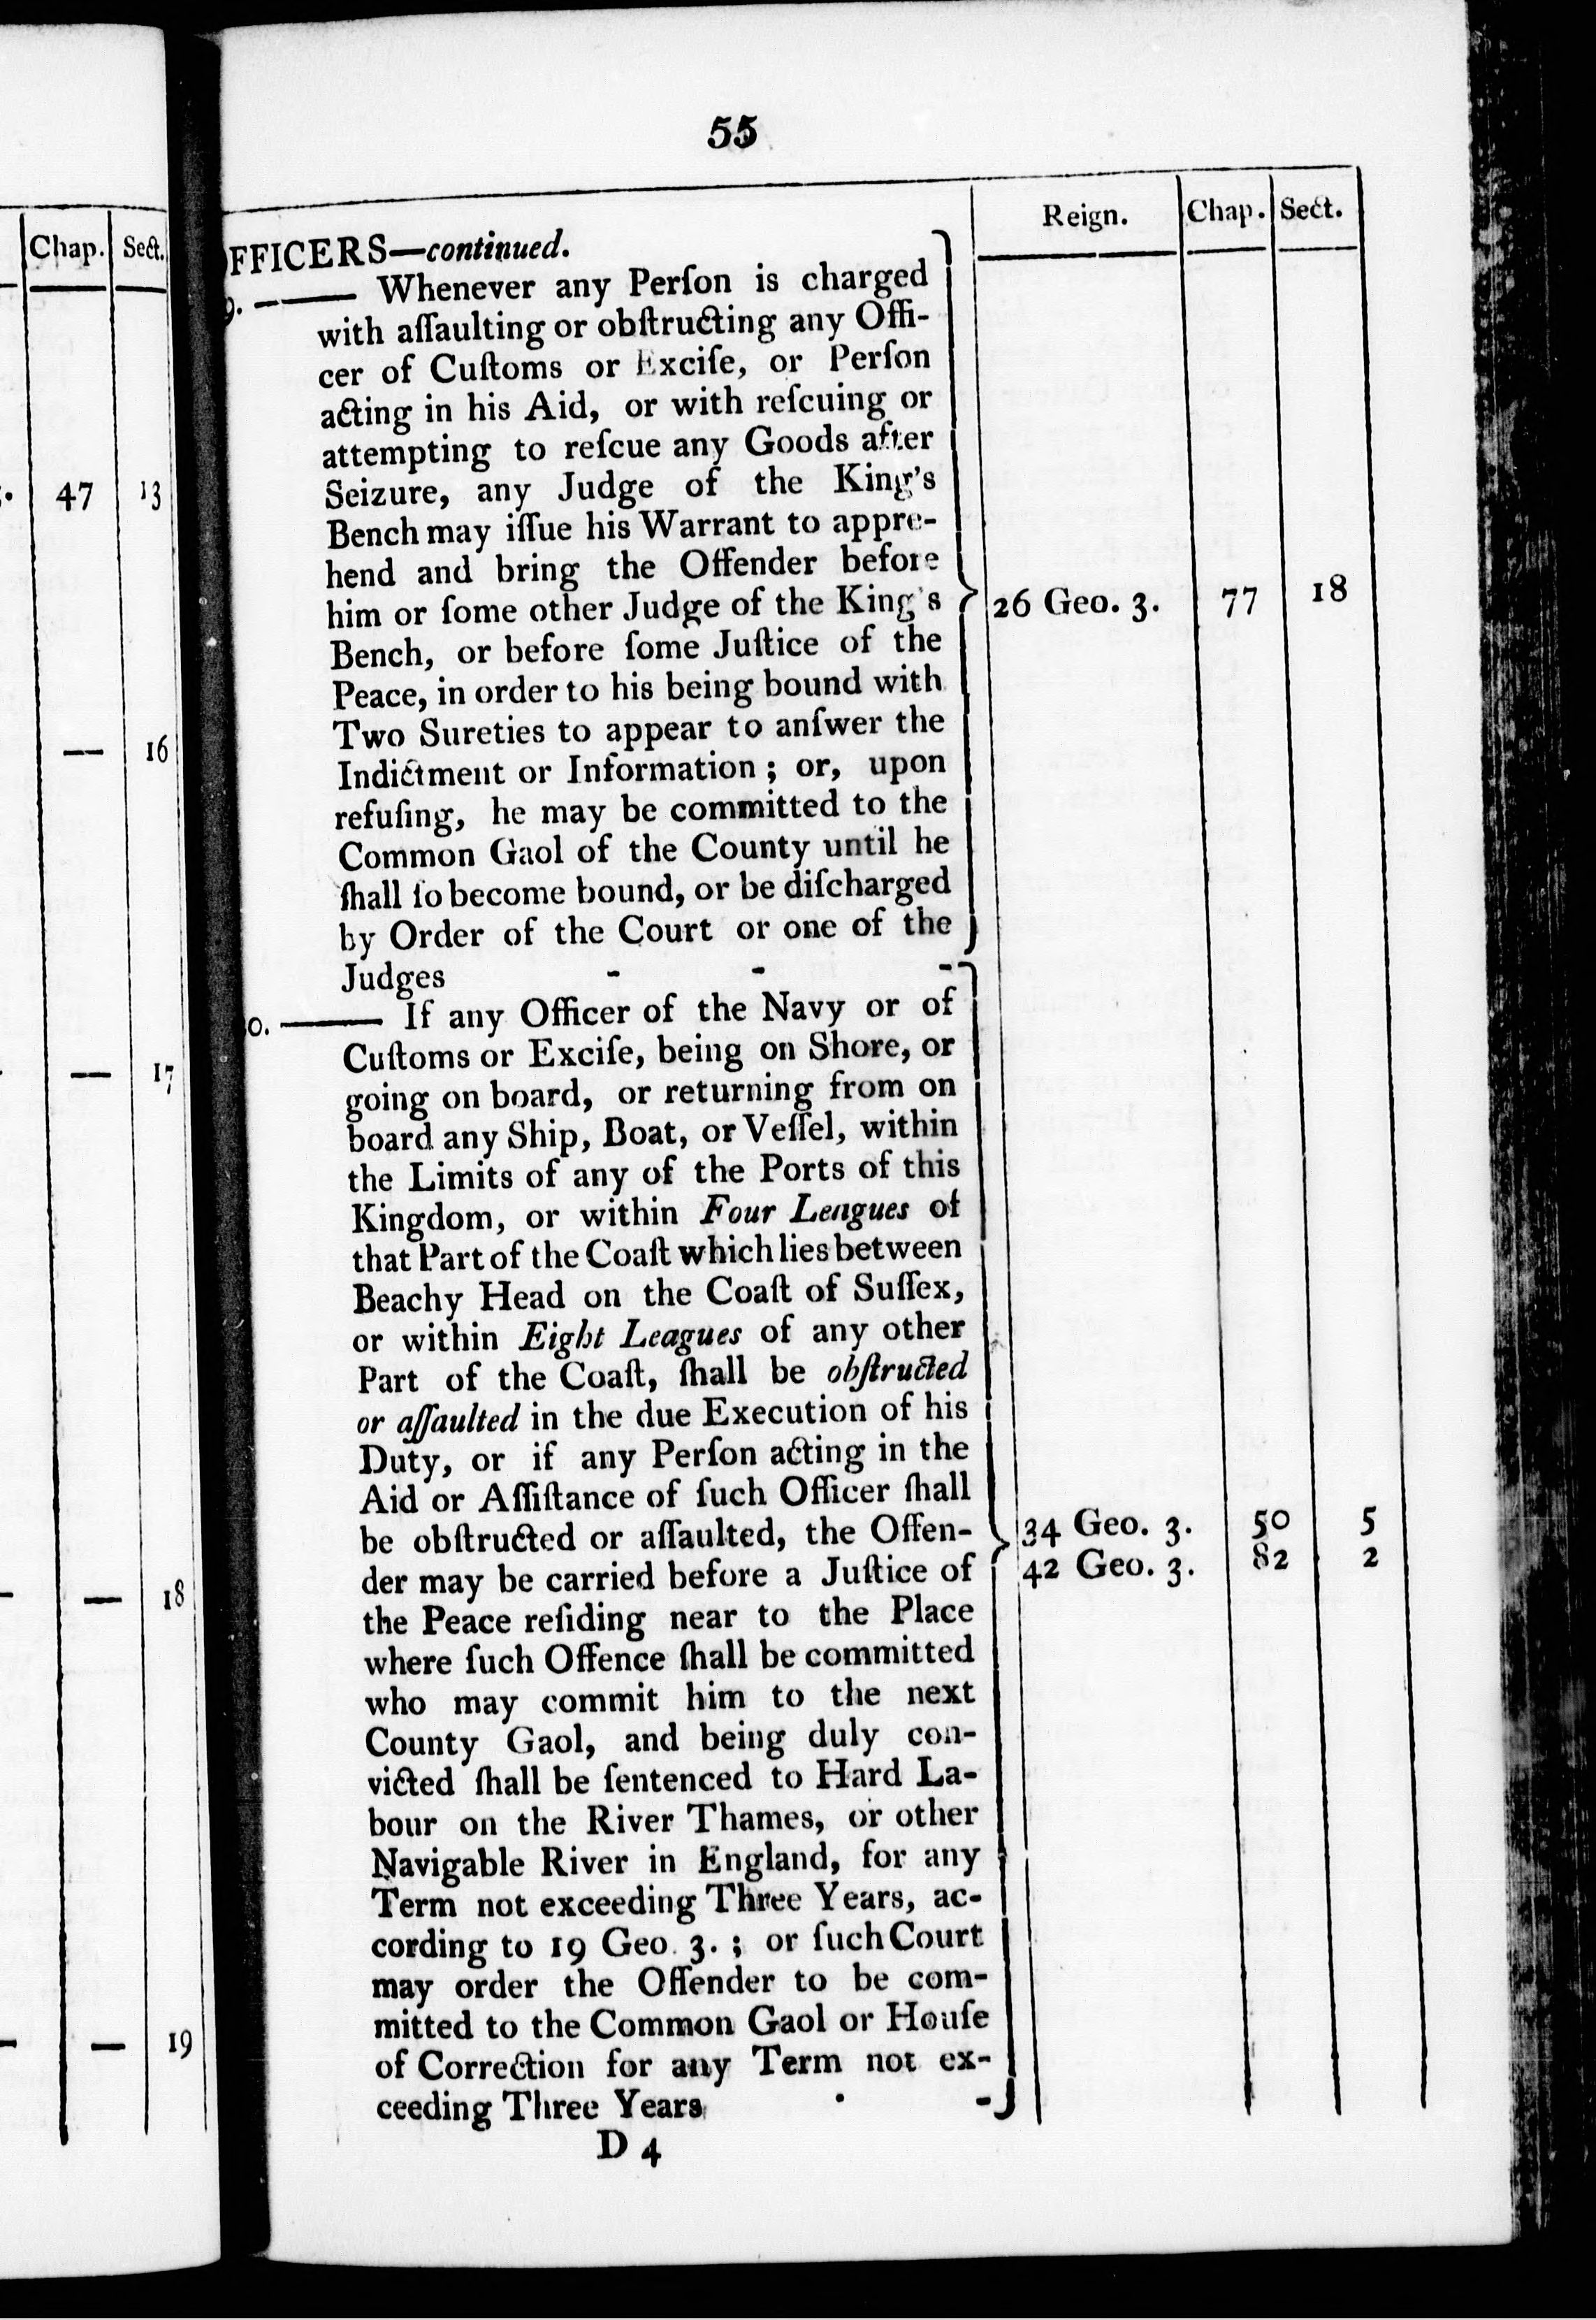 Chap. Sect.
47 13
— 16
— 17
— 18
— 19
55
Reign. Chap. Sect.
FFICERS—continued.
9. —— Whenever any Perſon is charged
with aſſaulting or obſtructing any Offi-
cer of Cuſtoms or Exciſe, or Perſon
acting in his Aid, or with reſcuing or
attempting to reſcue any Goods after
Seizure, any Judge of the King's
Bench may iſſue his Warrant to appre-
hend and bring the Offender before
him or ſome other Judge of the King's 26 Geo. 3. 77 18
Bench, or before ſome Juſtice of the
Peace, in order to his being bound with
Two Sureties to appear to anſwer the
Indictment or Information; or, upon
refuſing, he may be committed to the
Common Gaol of the County until he
ſhall ſo become bound, or be diſcharged
by Order of the Court or one of the
Judges - - -
0. —— If any Officer of the Navy or of
Cuſtoms or Exciſe, being on Shore, or
going on board, or returning from on
board any Ship, Boat, or Veſſel, within
the Limits of any of the Ports of this
Kingdom, or within Four Leagues of
that Part of the Coaſt which lies between
Beachy Head on the Coaſt of Suſſex,
or within Eight Leagues of any other
Part of the Coaſt, ſhall be obſtructed
or aſſaulted in the due Execution of his
Duty, or if any Perſon acting in the
Aid or Aſſiſtance of ſuch Officer ſhall
be obſtructed or aſſaulted, the Offen- 34 Geo. 3. 50 5
der may be carried before a Juſtice of 42 Geo. 3. 82 2
the Peace reſiding near to the Place
where ſuch Offence ſhall be committed
who may commit him to the next
County Gaol, and being duly con-
victed ſhall be ſentenced to Hard La-
bour on the River Thames, or other
Navigable River in England, for any
Term not exceeding Three Years, ac-
cording to 19 Geo. 3.; or ſuch Court
may order the Offender to be com-
mitted to the Common Gaol or Houſe
of Correction for any Term not ex-
ceeding Three Years - -
D 4